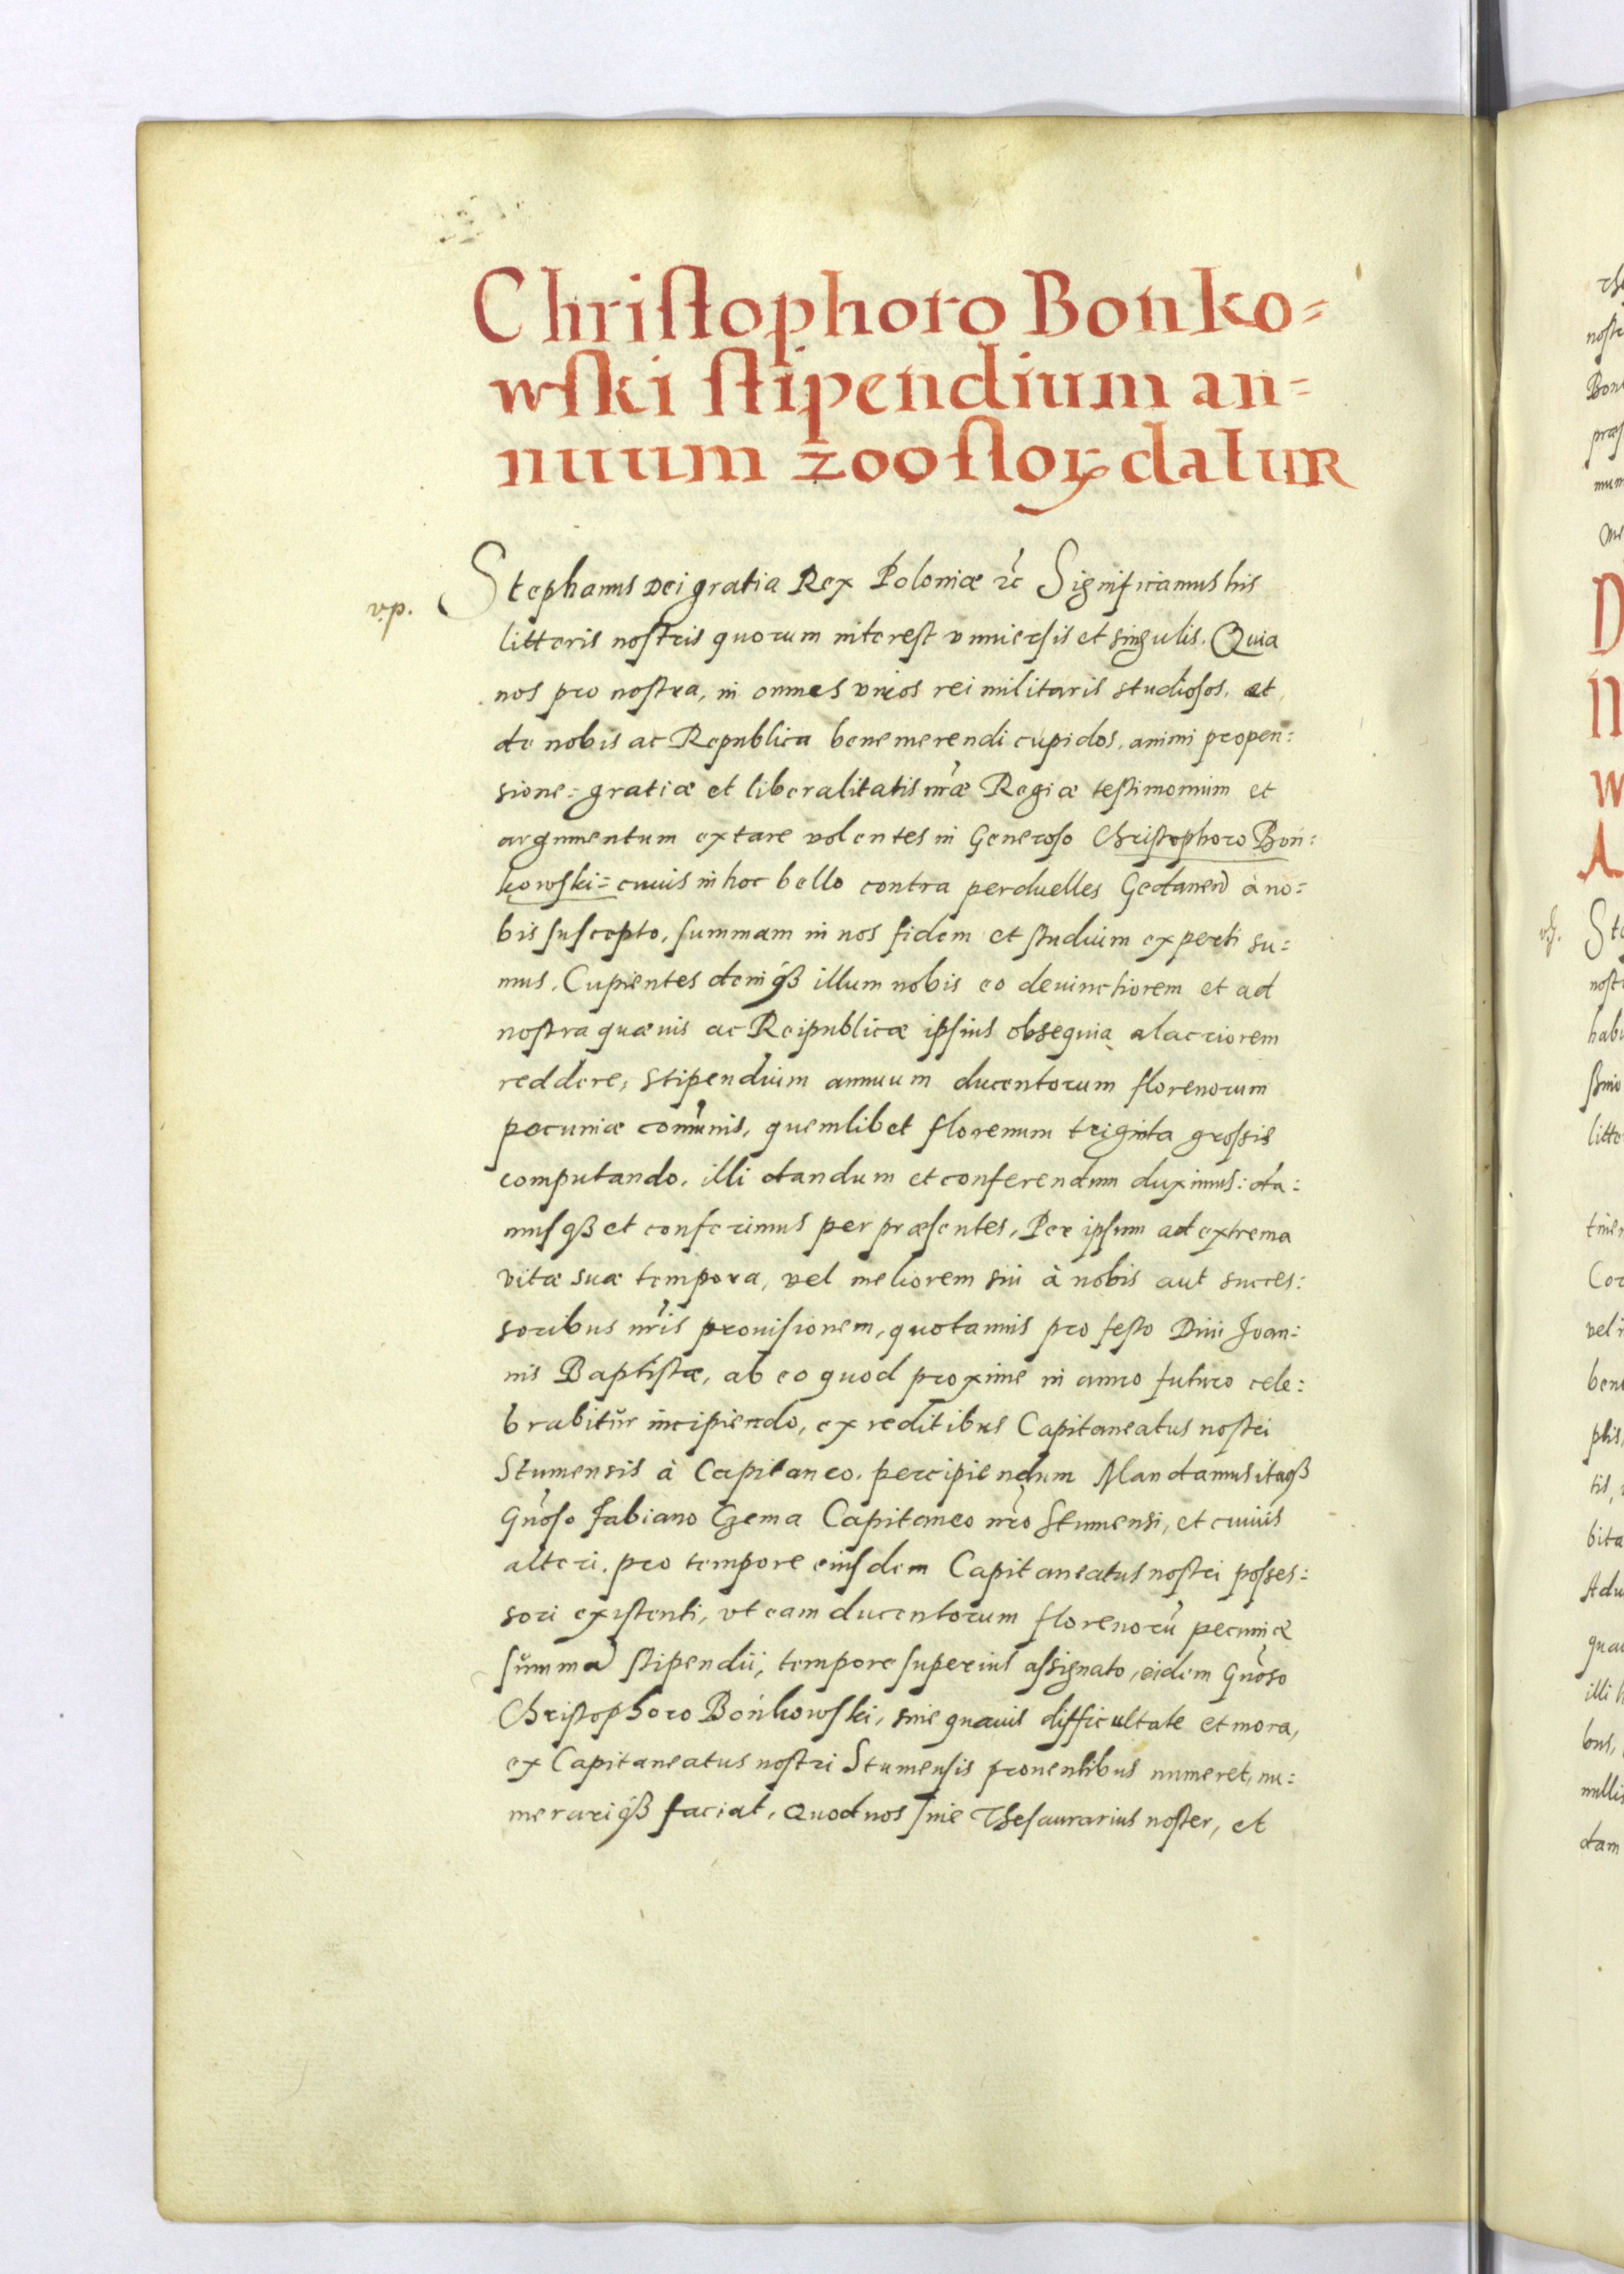 Christophoro Bonko=
wski stipendium an=
nuum 200 floꝝ datur
vp.
Stephanus Dei gratia Rex Poloniæ ꝛc Significamus his
litteris nostris quorum interest vniuersis et singulis. Quia
nos pro nostra, in omnes viros rei militaris studiosos, et
de nobis ac Republica benemerendi cupidos, animi propen:
sione: gratiæ et liberalitatis nr̃æ Regiæ testimonium et
argumentum extare volentes in Generoso Christophoro Bon:
kowski: cuius in hoc bello contra perduelles Gedanen̄ à no:
bis suscepto, summam in nos fidem et studium experti su:
mus. Cupientes deniqꝫ illum nobis eo deuinctiorem et ad
nostra quæuis ac Reipublicæ ipsius obsequia alacriorem
reddere, stipendium annuum ducentorum florenorum
pecuniæ com̃unis, quemlibet florenum triginta grossis
computando, illi dandum et conferendum duximus: da:
musqꝫ et conferimus per præsentes, Per ipsum ad extrema
vitæ suæ tempora, vel meliorem sui à nobis aut succes:
soribus nr̃is prouisionem, quotannis pro festo Diui Joan:
nis Baptistæ, ab eo quod proxime in anno futuro cele:
brabitur incipiendo, ex reditibus Capitaneatus nostri
Stumensis à Capitaneo, percipiendum Mandamus itaqꝫ
Gn̄oso Fabiano Czema Capitaneo nr̃o Stumensi, et cuiuis
alteri, pro tempore eiusdem Capitaneatus nostri posses:
sori existenti, vt eam ducentorum florenorū pecuniæ
summā stipendii, tempore superius assignato, eidem Gn̄oso
Christophoro Bońkowski, sine quauis difficultate et mora,
ex Capitaneatus nostri Stumensis prouentibus numeret, nu:
merariqꝫ faciat, Quod nos siue Thesaurarius noster, et